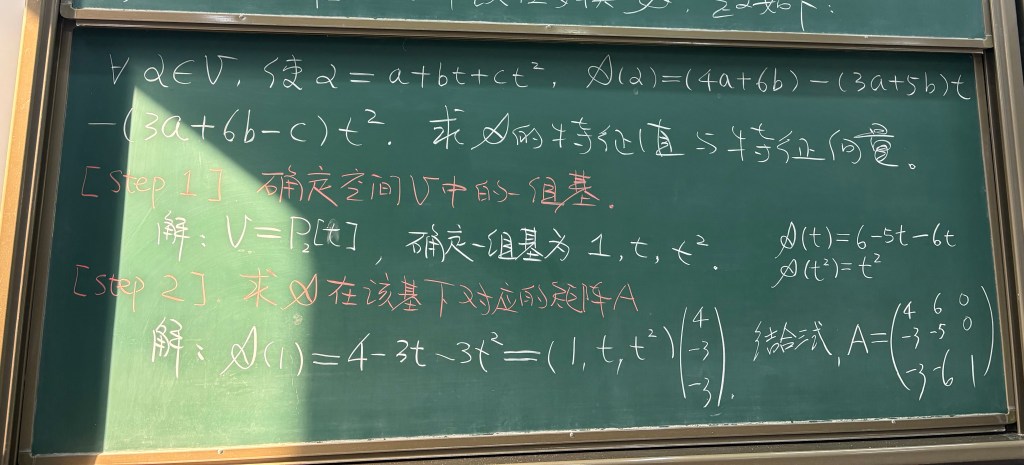 定义如下:
∀ α∈V, 使 α = a+bt+ct², 𝒜(α)=(4a+6b)-(3a+5b)t
-(3a+6b-c)t². 求𝒜的特征值与特征向量。
[Step 1] 确定空间V中的一组基.
解: V=P₂[t], 确定一组基为 1, t, t².
𝒜(t)=6-5t-6t
𝒜(t²)=t²
[Step 2] 求𝒜在该基下对应的矩阵A
解: 𝒜(1)=4-3t-3t²=(1,t,t²)(4 -3 -3). 结合式, A=(4 6 0 -3 -5 0 -3 -6 1)